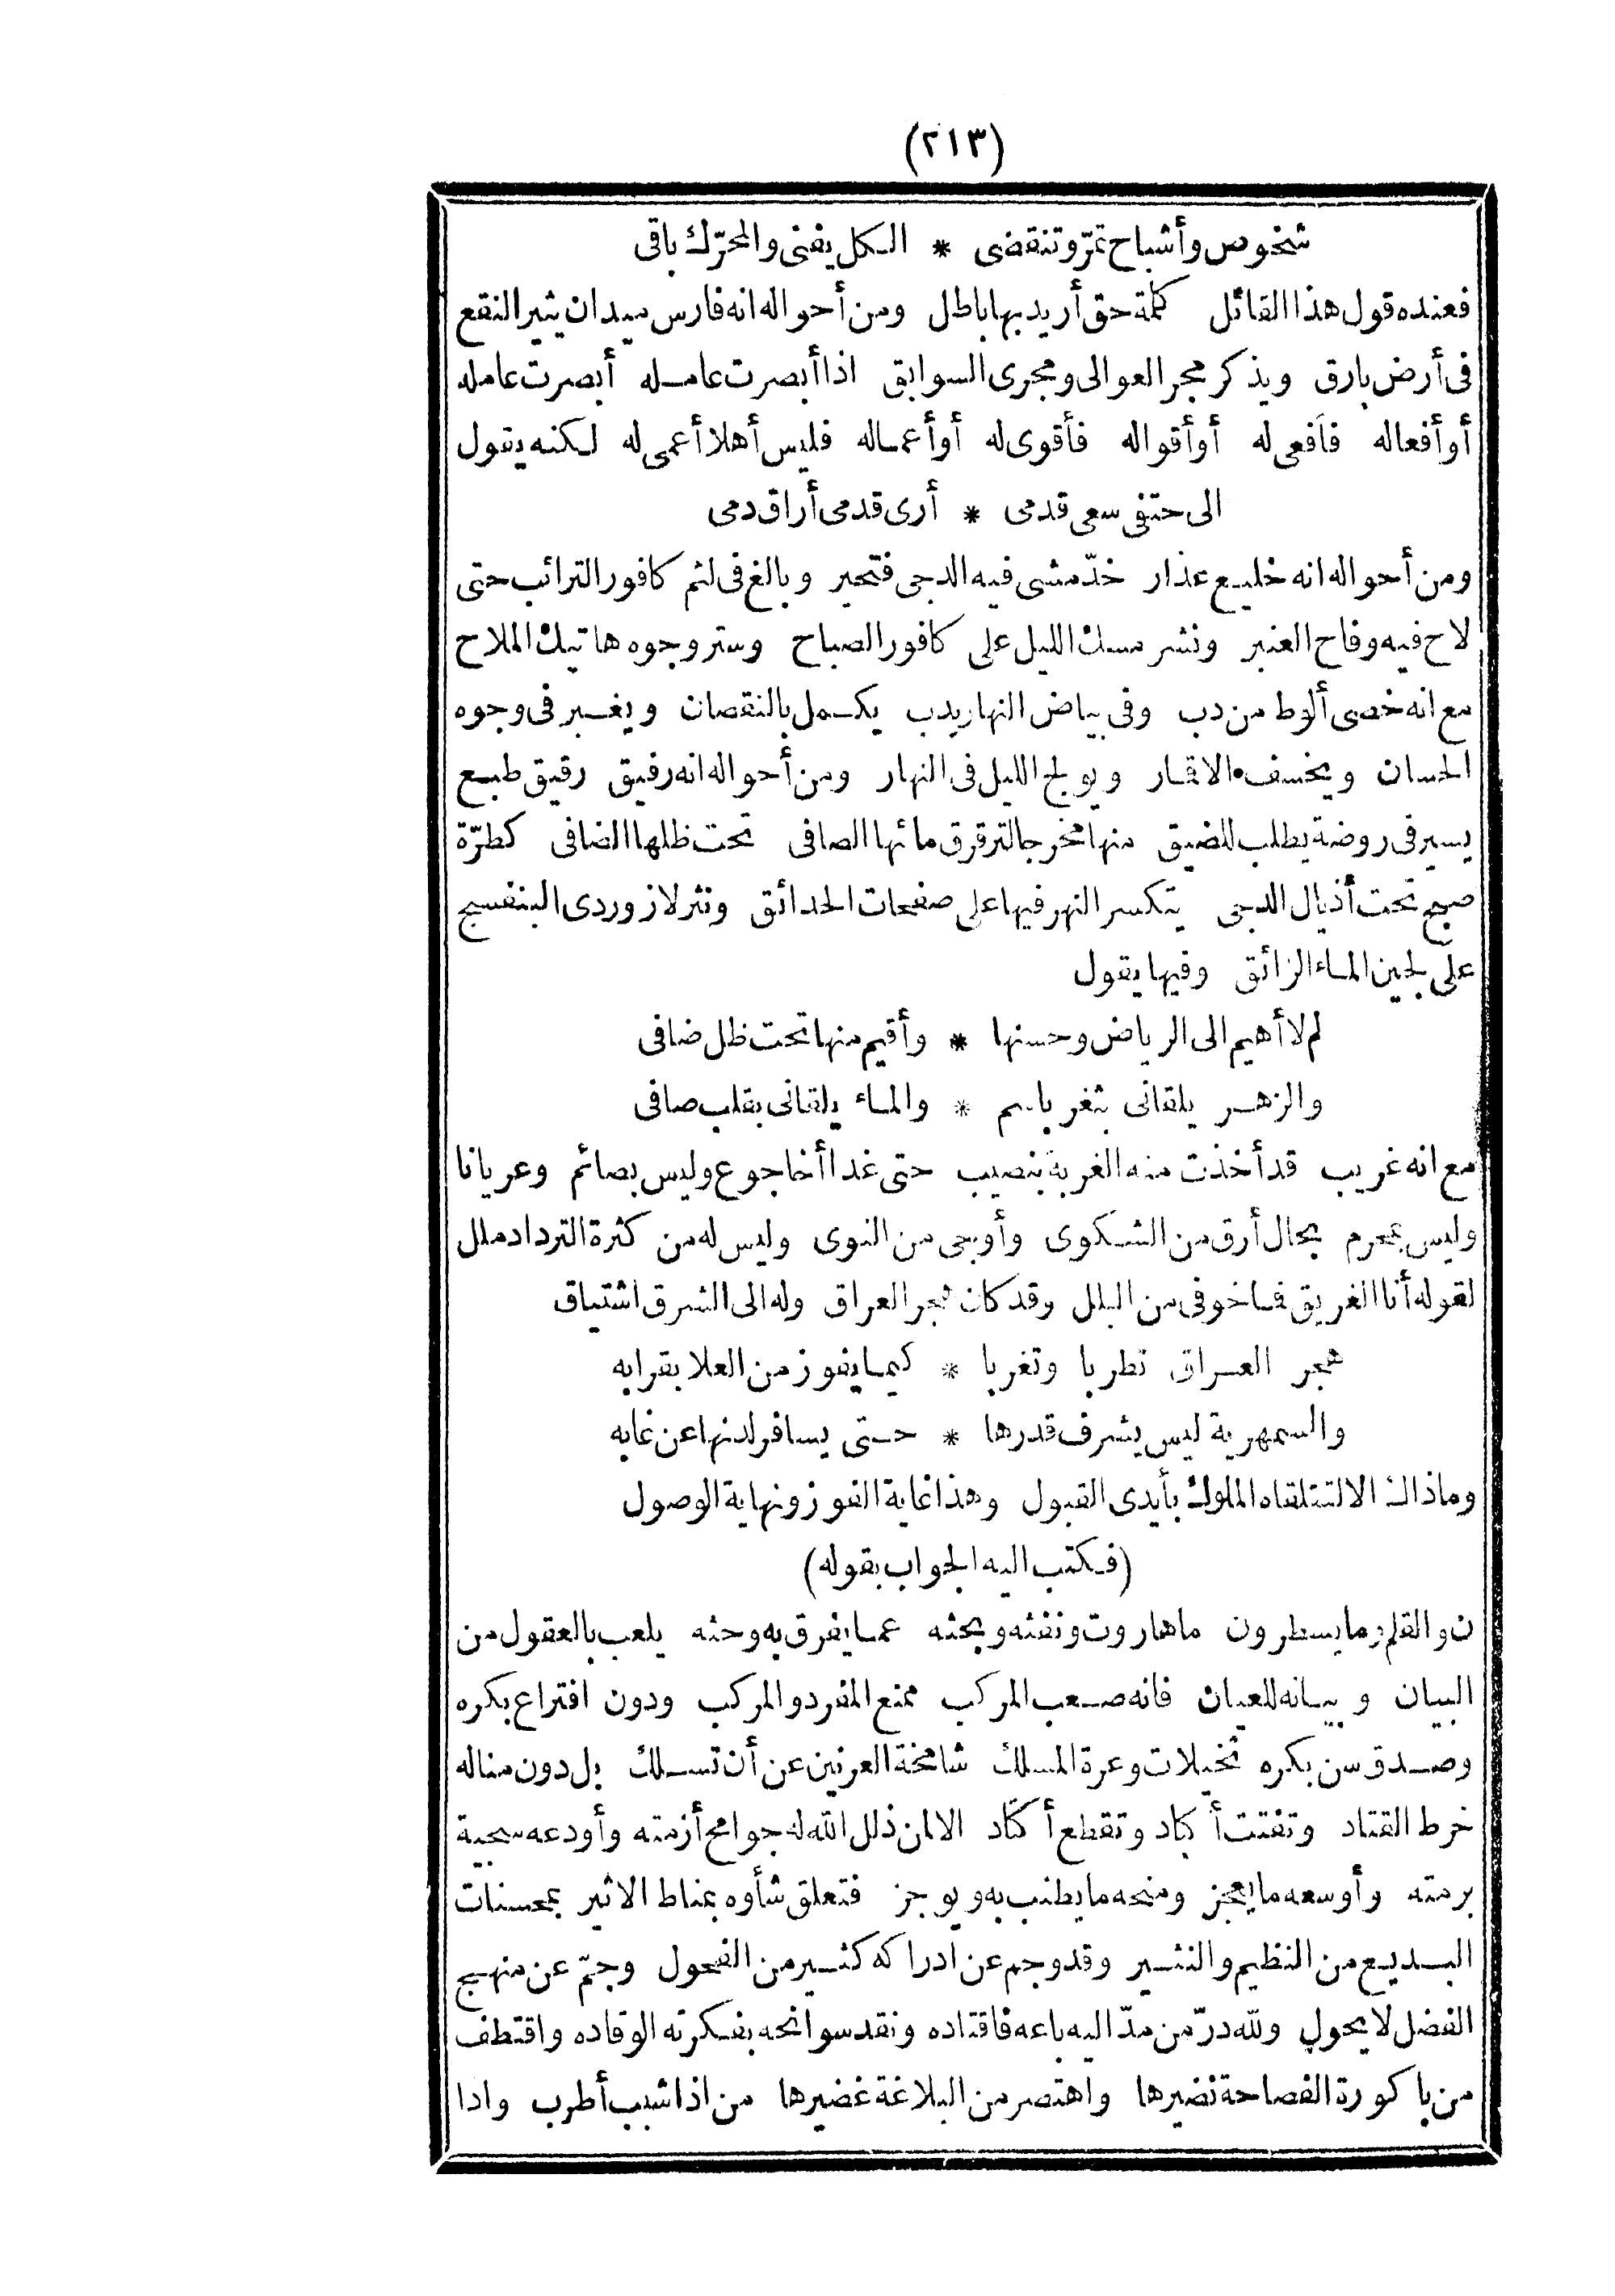 (٢١٣)
شخوص وأشباح تمرّ وتنقضى * الكل يفنى والمحرّك باقى
فعنده قول هذا القائل كلمة حق أريد بها باطل ومن أحواله انه فارس ميدان يثير النقع
فى أرض بارق ويذكر مجر العوالى ومجرى السوابق اذا أبصرت عامله أبصرت عامله
أو أفعاله فأفعى له أو أقواله فأقوى له أو أعماله فليس أهلا أعمى له لكنه يقول
الى حتفى سعى قدمى * أرى قدمى أراق دمى
ومن أحواله انه خليع عذار خدّ مشى فيه الدجى فتحير وبالغ فى لثم كافور الترائب حتى
لاح فيه وفاح العنبر ونشر مسك الليل على كافور الصباح وستر وجوه هاتيك الملاح
مع انه خصى ألوط من دب وفى بياض النهار يدب يكمل بالنقصان ويغبر فى وجوه
الحسان ويخسف الاقمار ويولج الليل فى النهار ومن أحواله انه رفيق رقيق طبع
يسير فى روضة يطلب للضيق منها مخرجا لترقرق مائها الصافى تحت ظلها الضافى كطرّة
صبح تحت أذيال الدجى يتكسر النهر فيها على صفحات الحدائق ونثر لازوردى البنفسج
على لجين الماء الزائق وفيها يقول
لم لا أهيم الى الرياض وحسنها * وأقيم منها تحت ظل ضافى
والزهر يلقانى بثغر باسم * والماء يلقانى بقلب صافى
مع انه غريب قد أخذت منه الغربة بنصيب حتى غدا أخا جوع وليس بصائم وعريانا
وليس بمحرم بحال أرق من الشكوى وأوجى من النوى وليس له من كثرة الترداد ملل
لقوله أنا الغريق فما خوفى من البلل وقد كان هجر العراق وله الى الشرق اشتياق
هجر العراق تطربا وتغربا * كيما يفوز من العلا بقرابه
والسمهرية ليس يشرف قدرها * حتى يسافر لدنها عن غابه
وما ذاك الا لتتلقاه الملوك بأيدى القبول وهذا غاية الفوز ونهاية الوصول
(فكتب اليه الجواب بقوله)
ن والقلم وما يسطرون ما هاروت ونفثه وبحثه عما يفرق به وحثه يلعب بالعقول من
البيان وبيانه للعيان فانه صعب المركب ممنع المفرد والمركب ودون افتراع بكره
وصدق سن بكره تخيلات وعرة المسلك شامخة العرنين عن أن تسلك بل دون مناله
خرط القتاد وتفتت أكباد وتقطع أكتاد الا لمن ذلل الله له جوامح أزمته وأودعه سجية
برمته وأوسعه ما يعجز ومنحه ما يطنب به ويوجز فتعلق شأوه بمناط الاثير بمحسنات
البديع من النظيم والنثير وقد وجم عن ادراكه كثير من الفحول وجثم عن منهج
الفضل لا يحول ولله درّ من مدّ اليه باعه فاقتاده ونقد سوانحه بفكرته الوقاده واقتطف
من باكورة الفصاحة نضيرها واهتصر من البلاغة غضيرها من اذا شبب أطرب واذا